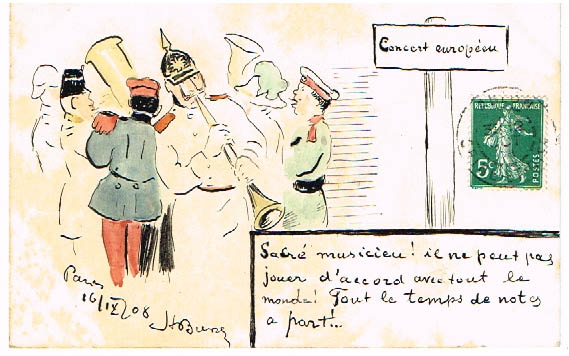 Concert européen
REPUBLIQUE FRANÇAISE
5c
POSTES
Sacré musicien! il ne peut pas
jouer d'accord avec tout le
monde! Tout le temps de notes
a part!..
Paris
16/IX/08